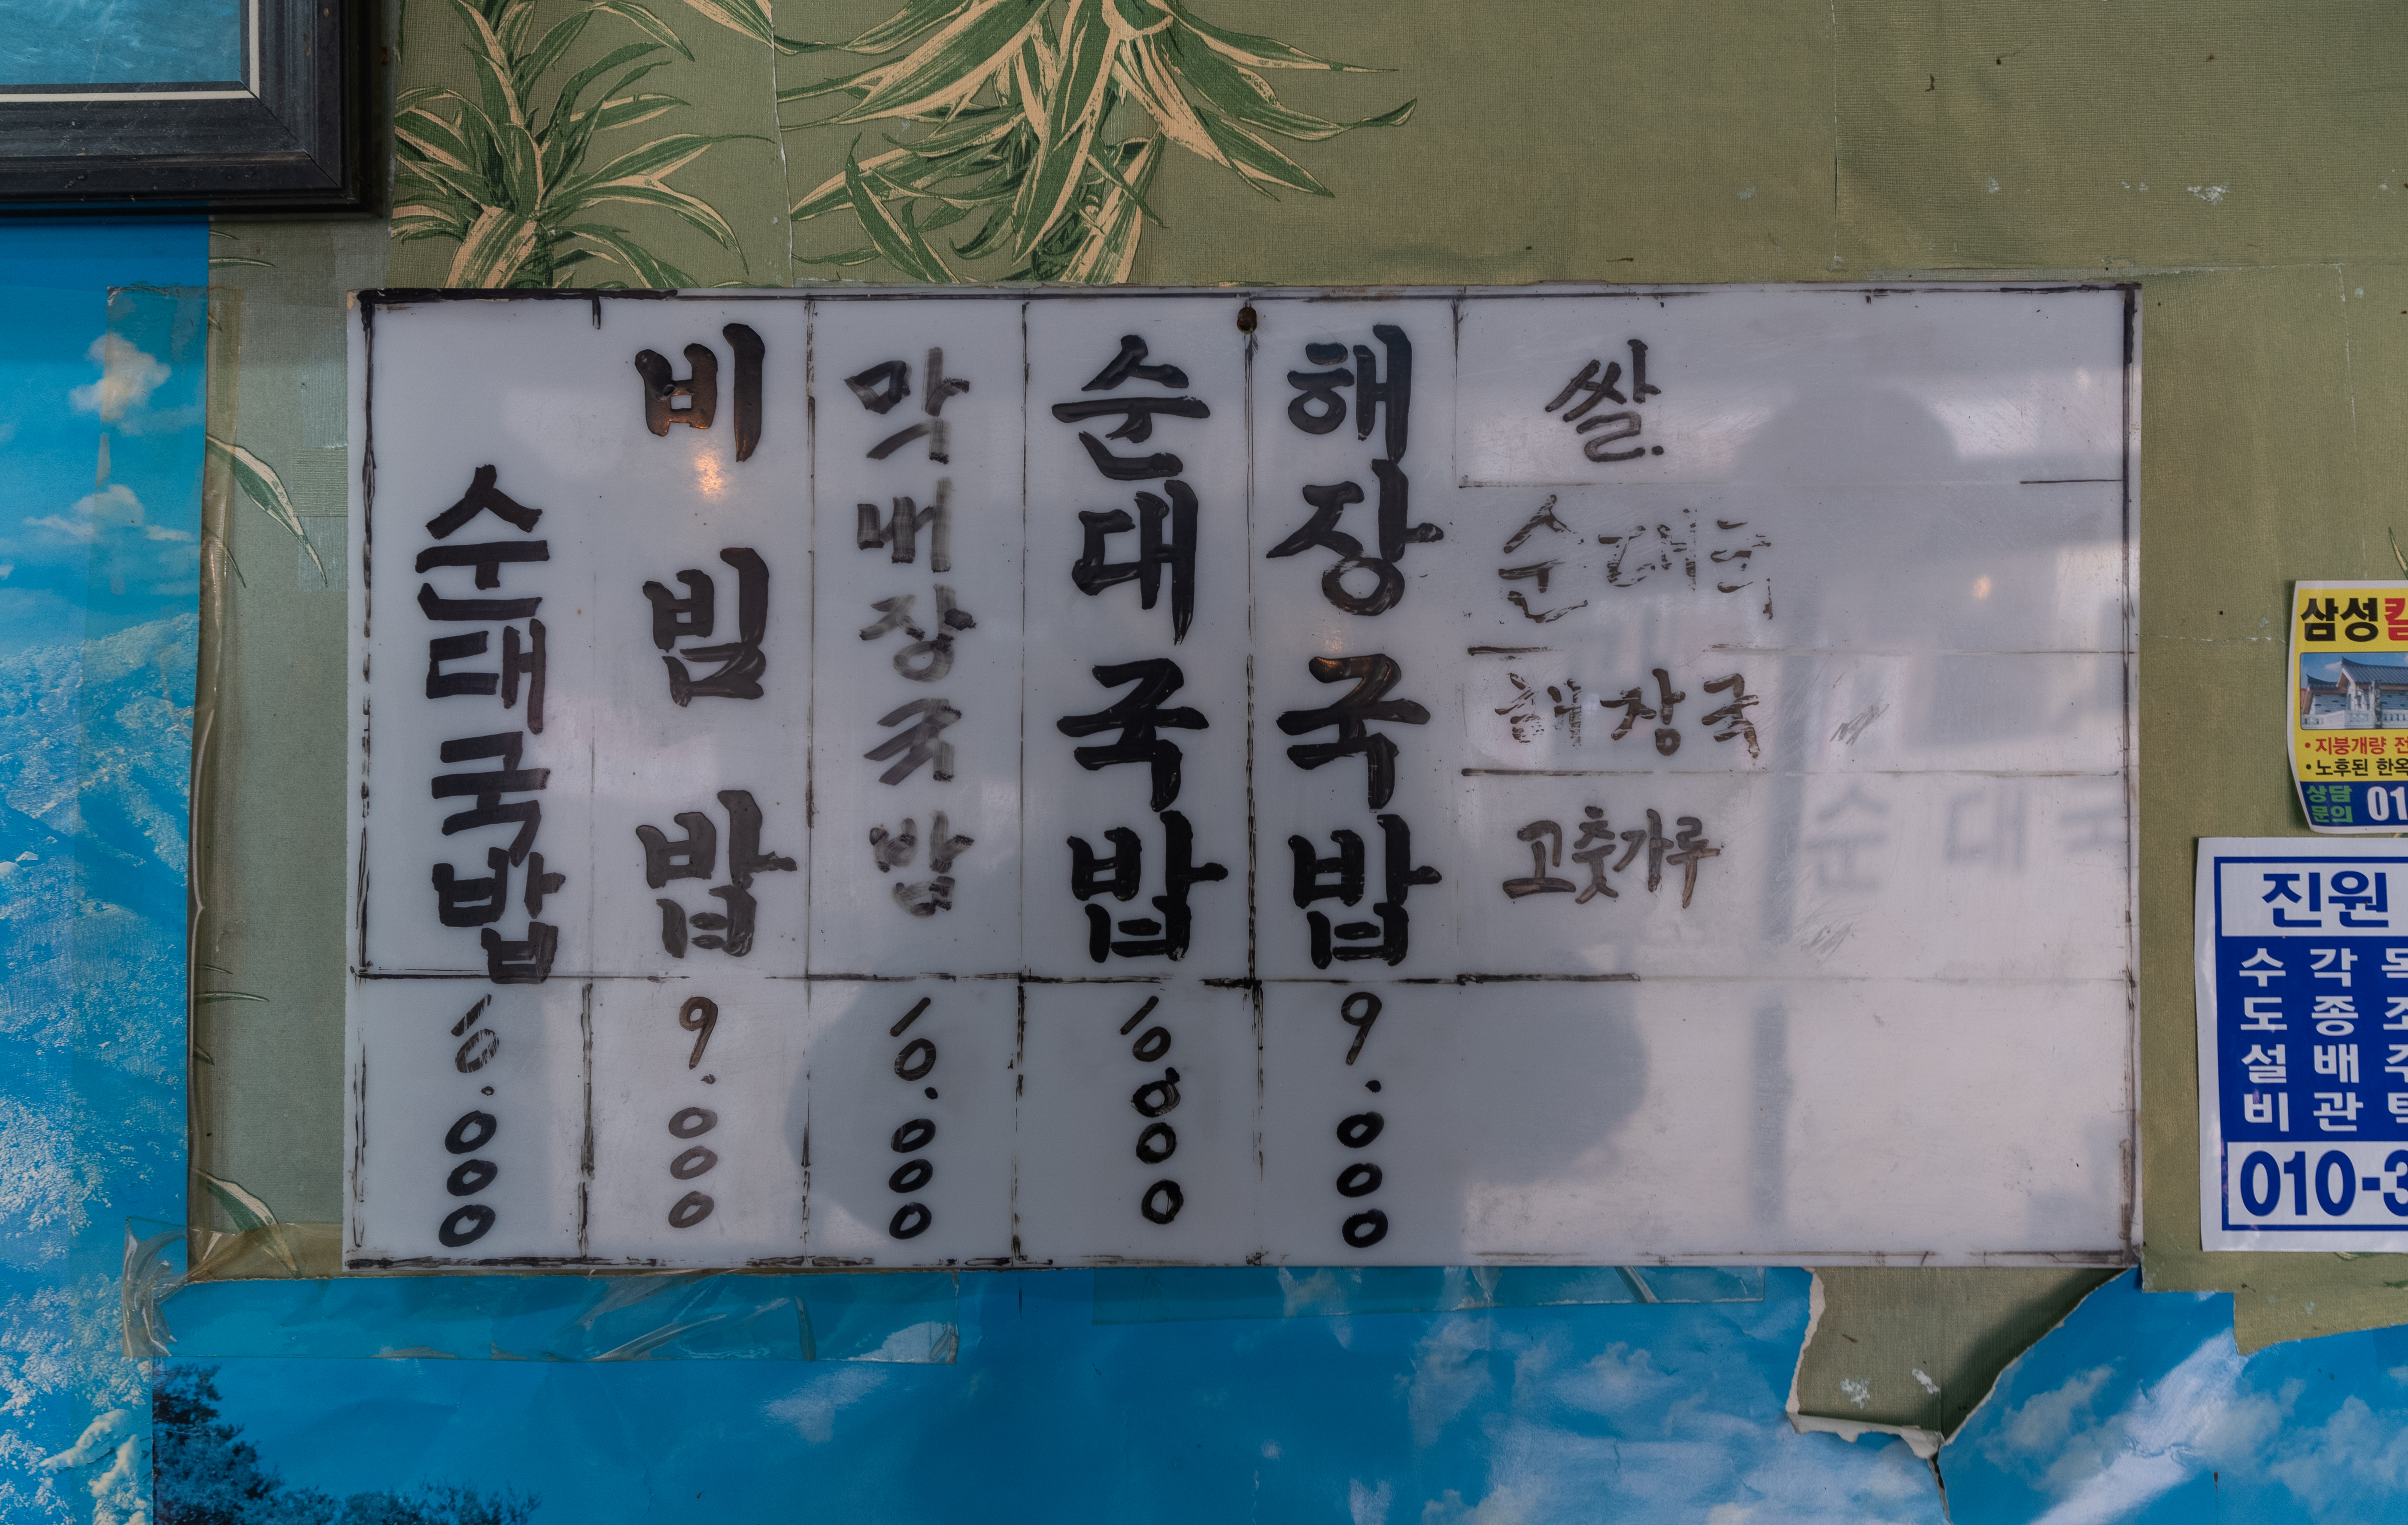 순대국밥
비빔밥 9.000
막내장국밥 10.000
순대국밥 10.000
해장국밥 9.000
쌀.
순대국
해장국
고춧가루
삼성
•지붕개량
•노후된
상담
문의 01
진원
수도설비
각종배관
010-3